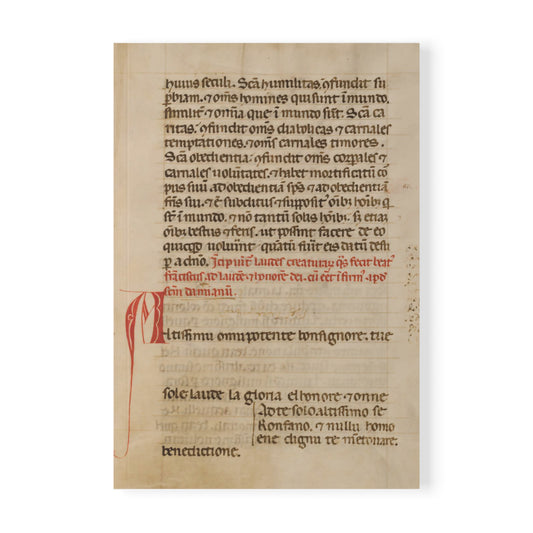 huius seculi. Scā humilitas ꝯfundit su
ꝑbiam. ⁊ om̄s homines qui sunt ī mundo.
similit̄ ⁊ om̄ia que ī mundo sūt. Scā ca
ritas. ꝯfundit om̄s diabolicas ⁊ carnales
temptationes. ⁊ om̄s carnales timores.
Scā obedientia. ꝯfundit om̄s corꝑales ⁊
carnales uolūtates. ⁊ habet mortificatū co
pus suū ad obedientiā sp̄s ⁊ ad obedientiā
fr̄is sui. ⁊ ē subditus ⁊ supposit᾽ oībꝫ hoībꝫ q̄
st̄ ī mundo. ⁊ nō tantū solis hoībꝫ. sꝫ etiaꝫ
oībꝫ bestiis ⁊ feris. ut possint facere de eo
quicqd uolūint quātū fūit eis datū desu
ꝑ a dn̄o. Incipiūt laudes creaturaꝝ qͣs fecit beat᾽
franciscus ad laudē ⁊ honorē dei. cū eēt īfirm᾽ apd
scm̄ damianū.
Altissimu onnipotente bonsignore. tue
sole laude la gloria elhonore ⁊ onne
Ad te solo altissimo se
Konfano. ⁊ nullu homo
ene dignu te mētouare.
benedictione.